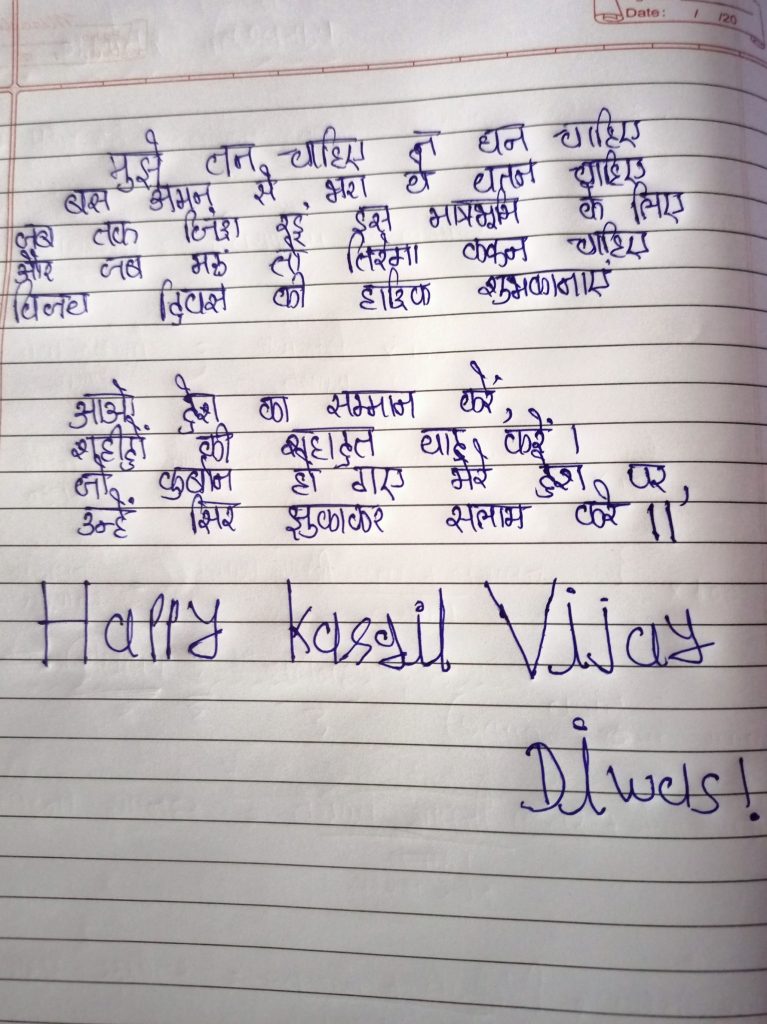 Date: / /20
मुझे तन चाहिए न धन चाहिए
बस अमन से भरा ये वतन चाहिए
जब तक जिंदा रहूं इस मात्रभूमि के लिए
और जब मरूं तो तिरंगा कफन चाहिए
विजय दिवस की हार्दिक शुभकानाएं
आओ देश का सम्मान करें,
शहीदों की शहादत याद करें।
जो कुर्बान हो गए मेरे देश पर,
उन्हें सिर झुकाकर सलाम करे ॥
Happy Kasgil Vijay
Diwas!